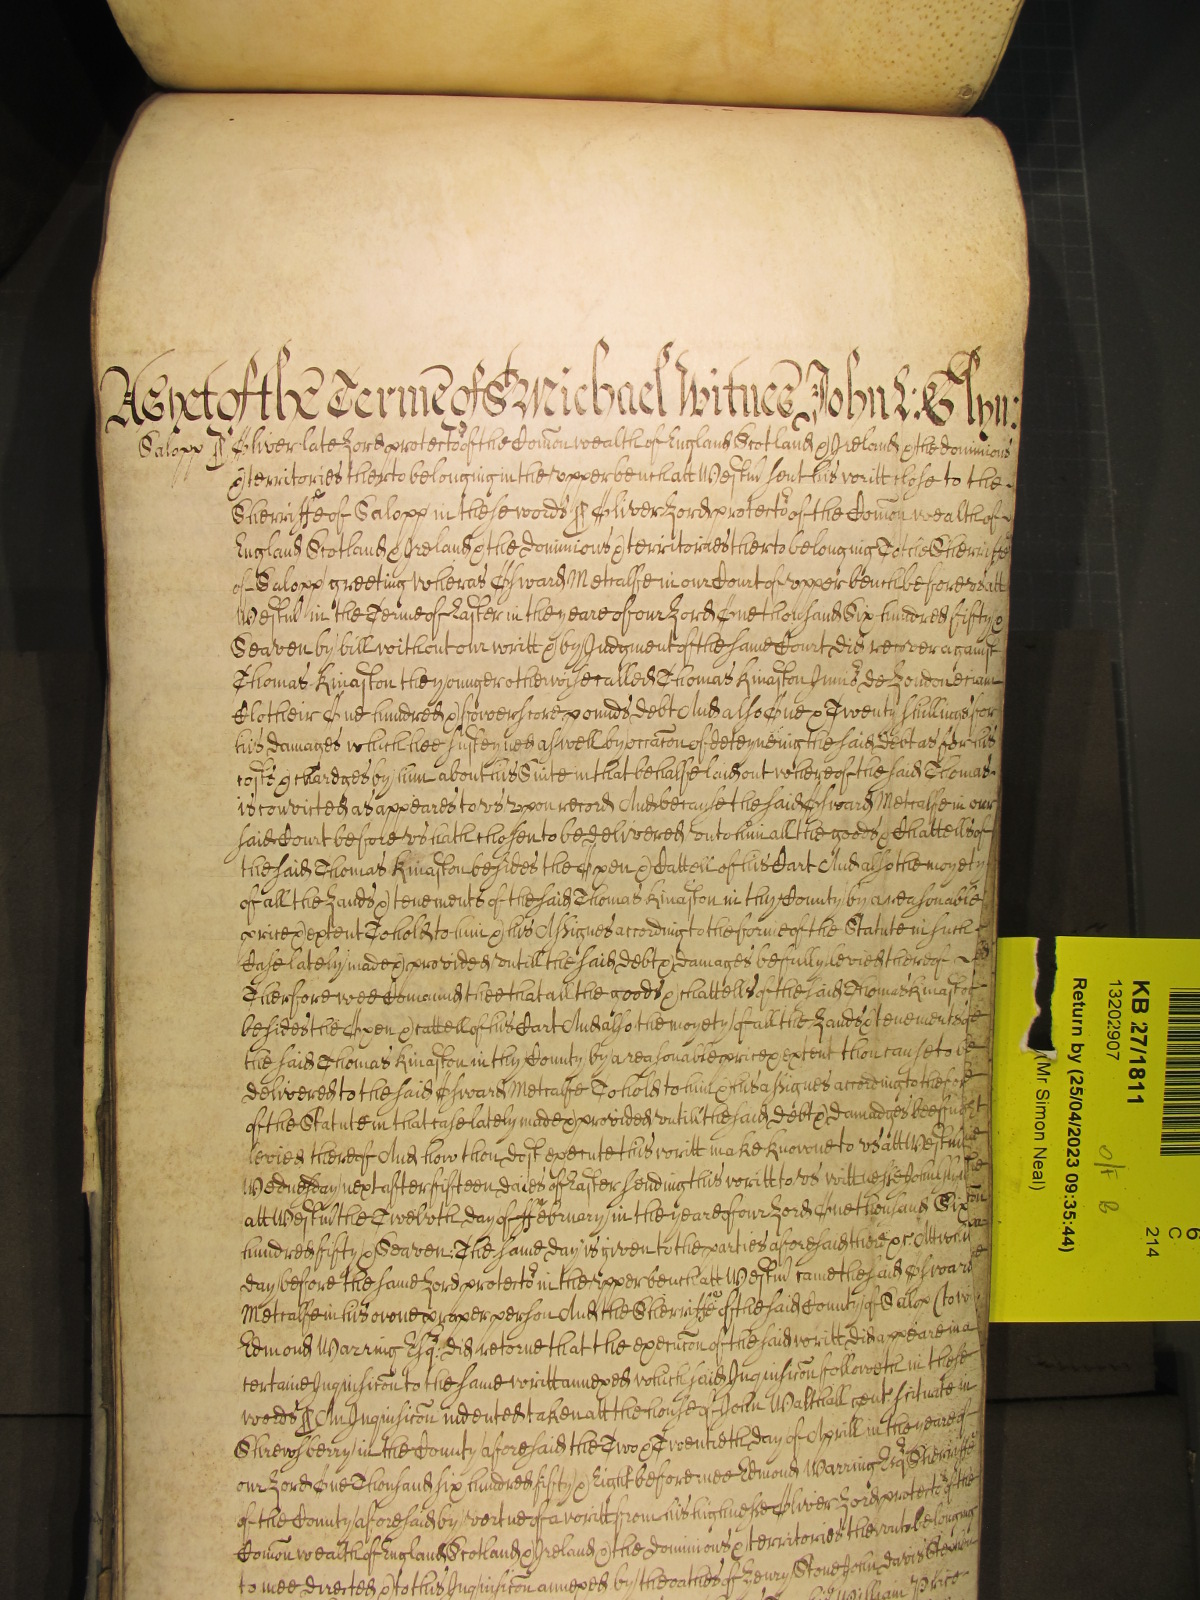 As yet of the Terme of St Michael Witnes John L: Glyn:
Salopp ¶ Oliver late Lord protector of the Comon wealth of England Scotland & Ireland & the dominions
& territories therto belonging in the upper bench att Westm sent his writt close to the
Sherriffe of Salopp in these words ¶ Oliver Lord protector of the Comon wealth of
England Scotland & Ireland & the dominions & territories therto belonging To the Sherriffe
of Salopp greeting wheras Edward Metcalfe in our Court of upper bench before us att
Westm in the Terme of Easter in the yeare of our Lord One thousand Six hundred fifty &
Seaven by bill without our writt & by Judgment of the same Court did recover against
Thomas Kinaston the younger otherwise called Thomas Kinaston Junr de London
Clothier One hundred & fower score pounds debt And also One & Twenty shillings for
his damages which hee susteyned aswell by occacon of deteyneing the said debt as for his
costs & chardges by him about his Suite in that behalfe laid out whereof the said Thomas
is convicted as appeares to us upon record And because the said Edward Metcalfe in our
said Court before us hath chosen to be delivered unto him all the goods & Chattells of
the said Thomas Kinaston besides the Oxen & Cattell of his Cart And also the moyety
of all the Lands & tenements of the said Thomas Kinaston in thy County by a reasonable
price & extent To hold to him & his Assignes according to the forme of the Statute in such
Case lately made & provided untill the said debt & damages be fully levied therof
Therfore wee Comaund thee that all the goods & chattells of the said Thomas Kinaston
besides the Oxen & cattell of his Cart And also the moyety of all the Lands & tenements of
the said Thomas Kinaston in thy County by a reasonable price & extent thou cause to be
delivered to the said Edward Metcalfe To hold to him & his assignes according to the
of the Statute in that case lately made & provided untill the said debt & damadges bee
levied therof And how thou dost execute this writt make knowne to us att Westm
Wednesday next after fifteen daies of Easter sending this writt to us wittnesse John Glyn
att Westm the Twelvth day of February in the yeare of our Lord One thousand Six
hundred fifty & Seaven: The same day is given to the parties aforesaid there &c Att
day before the same Lord protector in the upper bench att Westm came the said Edward
Metcalfe in his owne proper person And the Sherriffe of the said County of Salop (to
Edmond Warring Esq: did retorne that the execucon of the said writt did appeare in a
certaine Inquisicon to the same writt annexed which said Inquisicon followeth in these
words ¶ An Inquisicon indented taken att the house of John Walthall gent scituate in
Shrewsberry in the County aforesaid the Two & Twentieth day of Aprill in the yeare of
our Lord One Thousand six hundred fifty & Eight before mee Edmond Warring Esq Sherriffe
of the County aforesaid by vertue of a writt from his highnesse Oliver Lord protector of the
Comon wealth of England Scotland & Ireland & the dominions & territories therunto belonging
to mee directed & to this Inquisicon annexed by the oathes of Henry Stone John davis
William Price
KB 27/1811
13202907
Return by (25/04/2023 09:35:44)
(Mr Simon Neal)
6
C
214